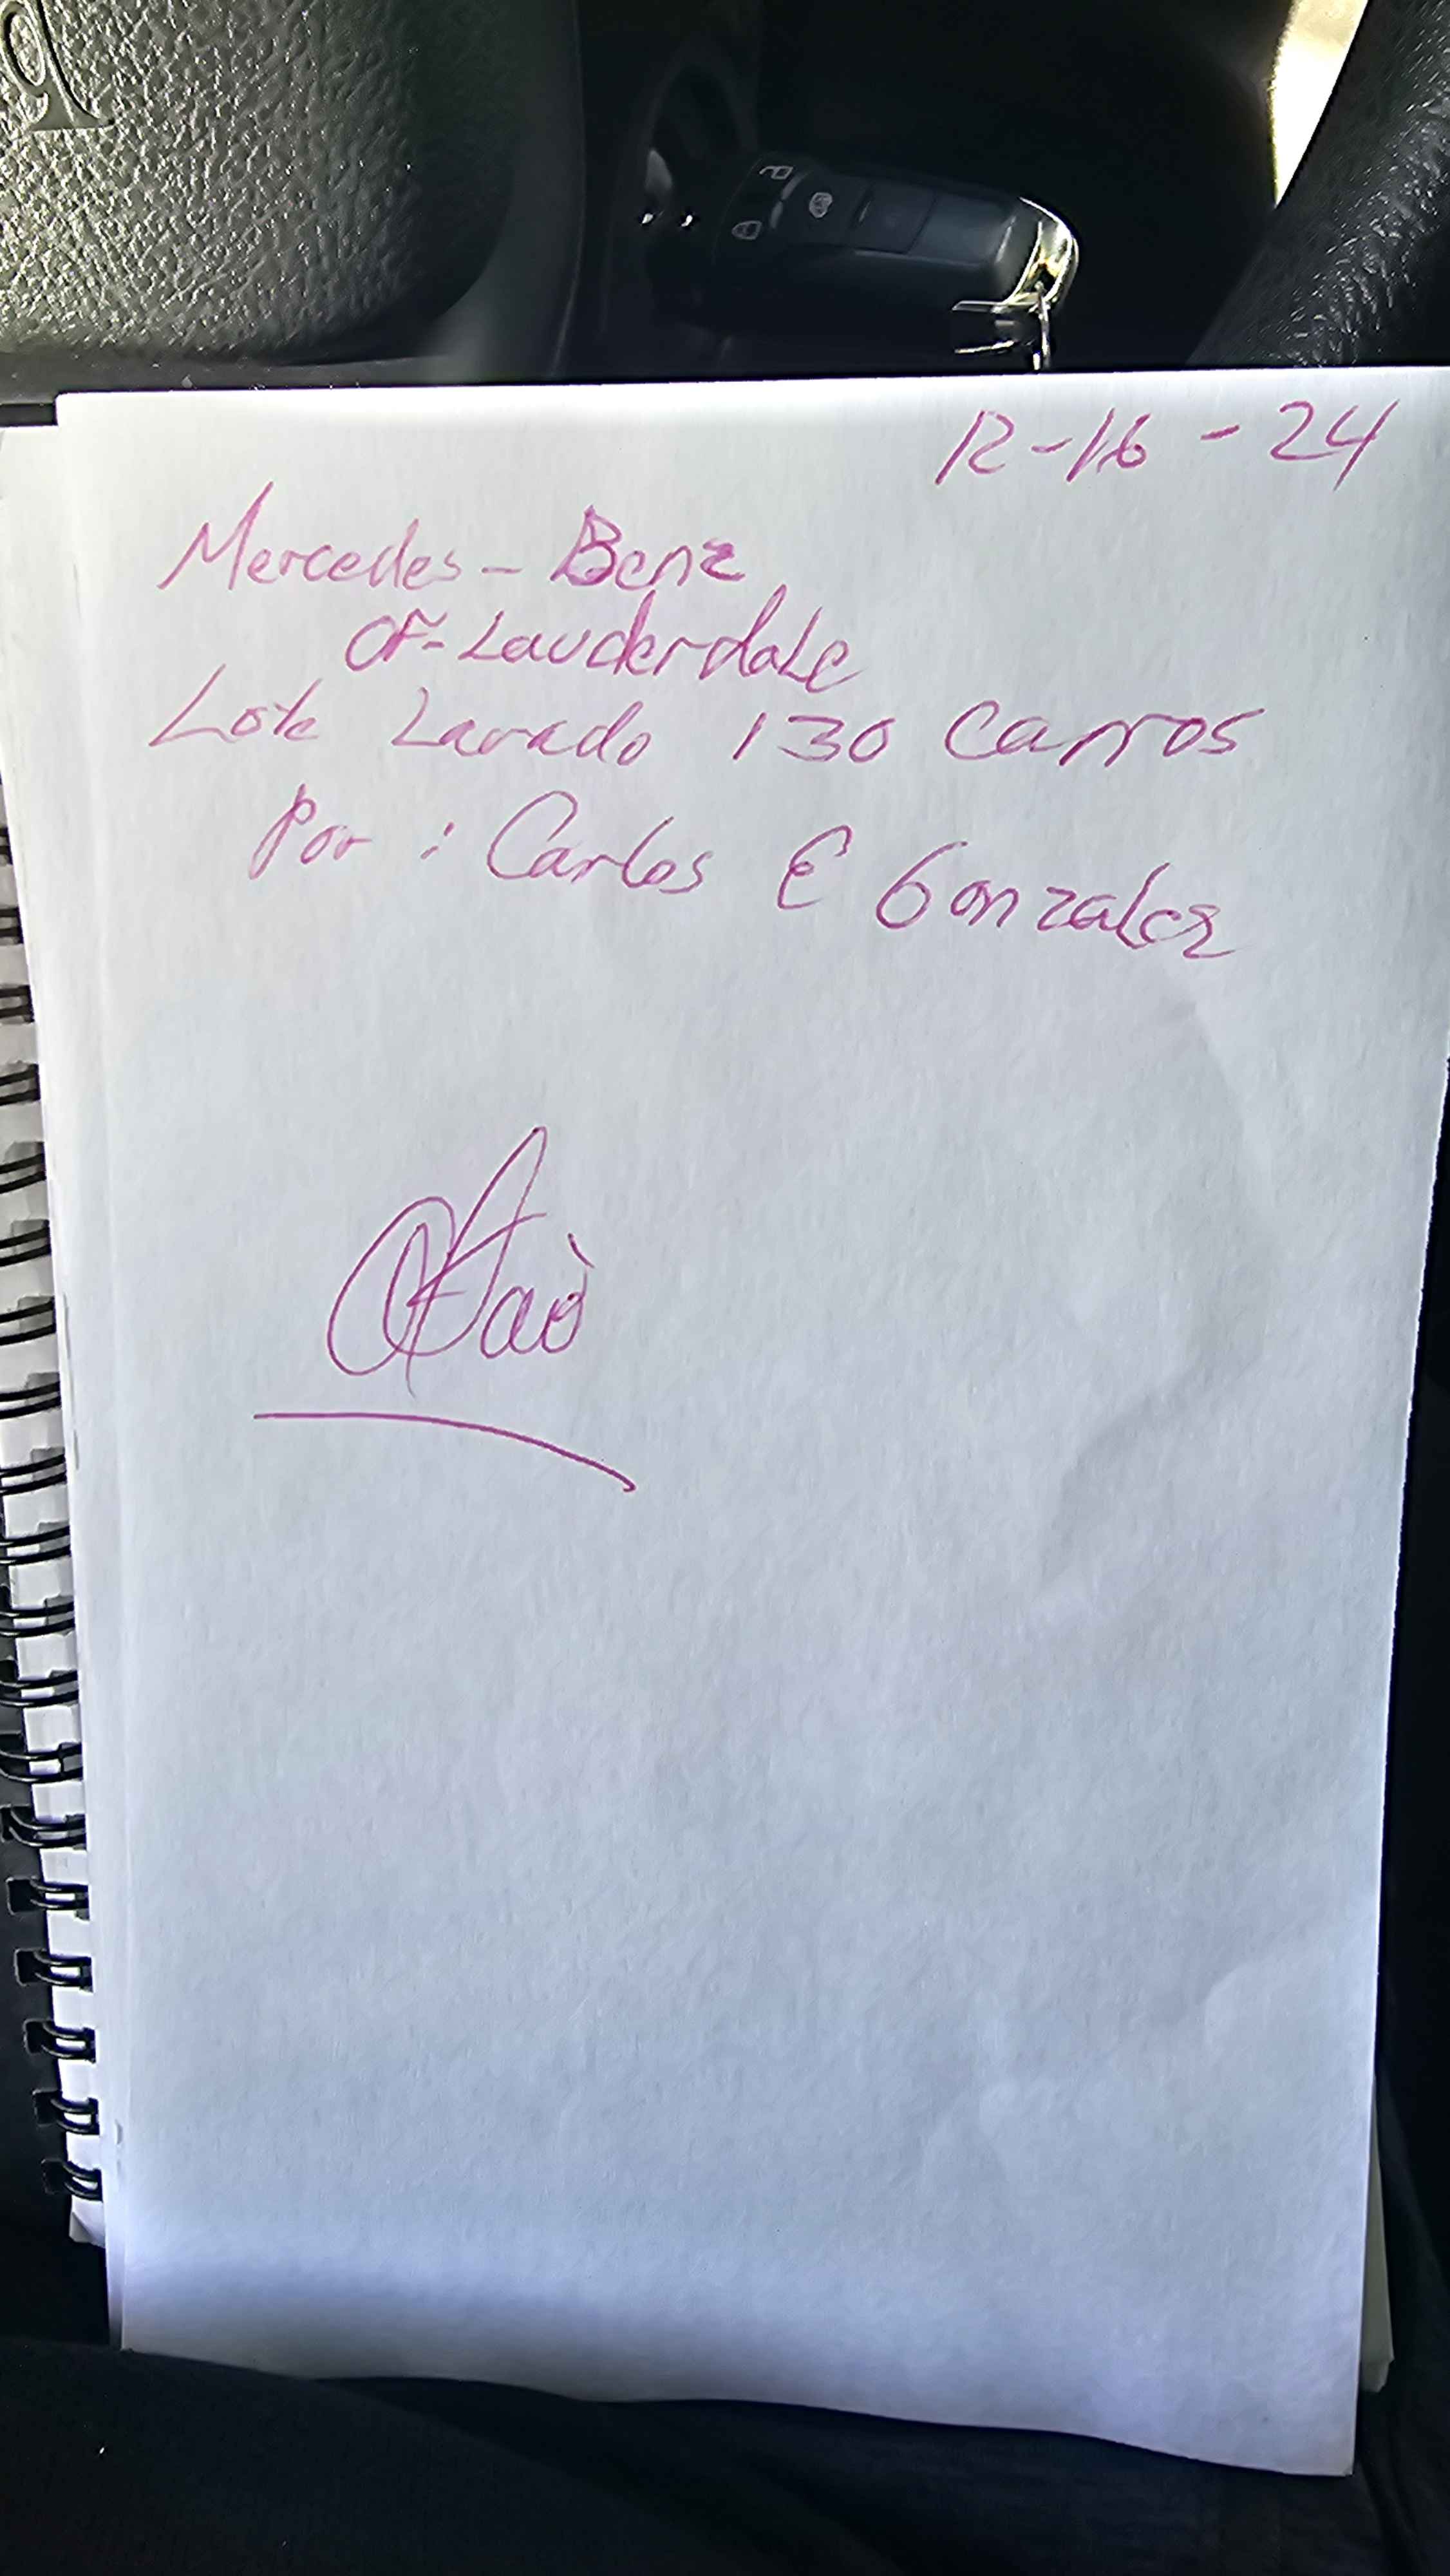 12-16-24
Mercedes-Benz
OF-Lauderdale
Lote Lavado 130 Carros
Por: Carlos E Gonzalez